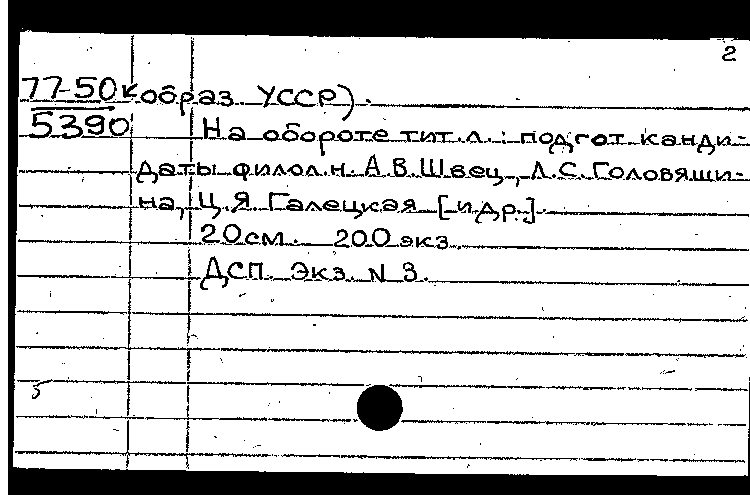 2
77-50к образ УССР).
5390 На обороте тит.л.: подгот. канди-
даты филол.н. А.В.Швец, Л.С.Головящи-
на, Ц.Я.Галецкая [и др.].
20см. 200 экз.
ДСП. Экз. N 3.
5